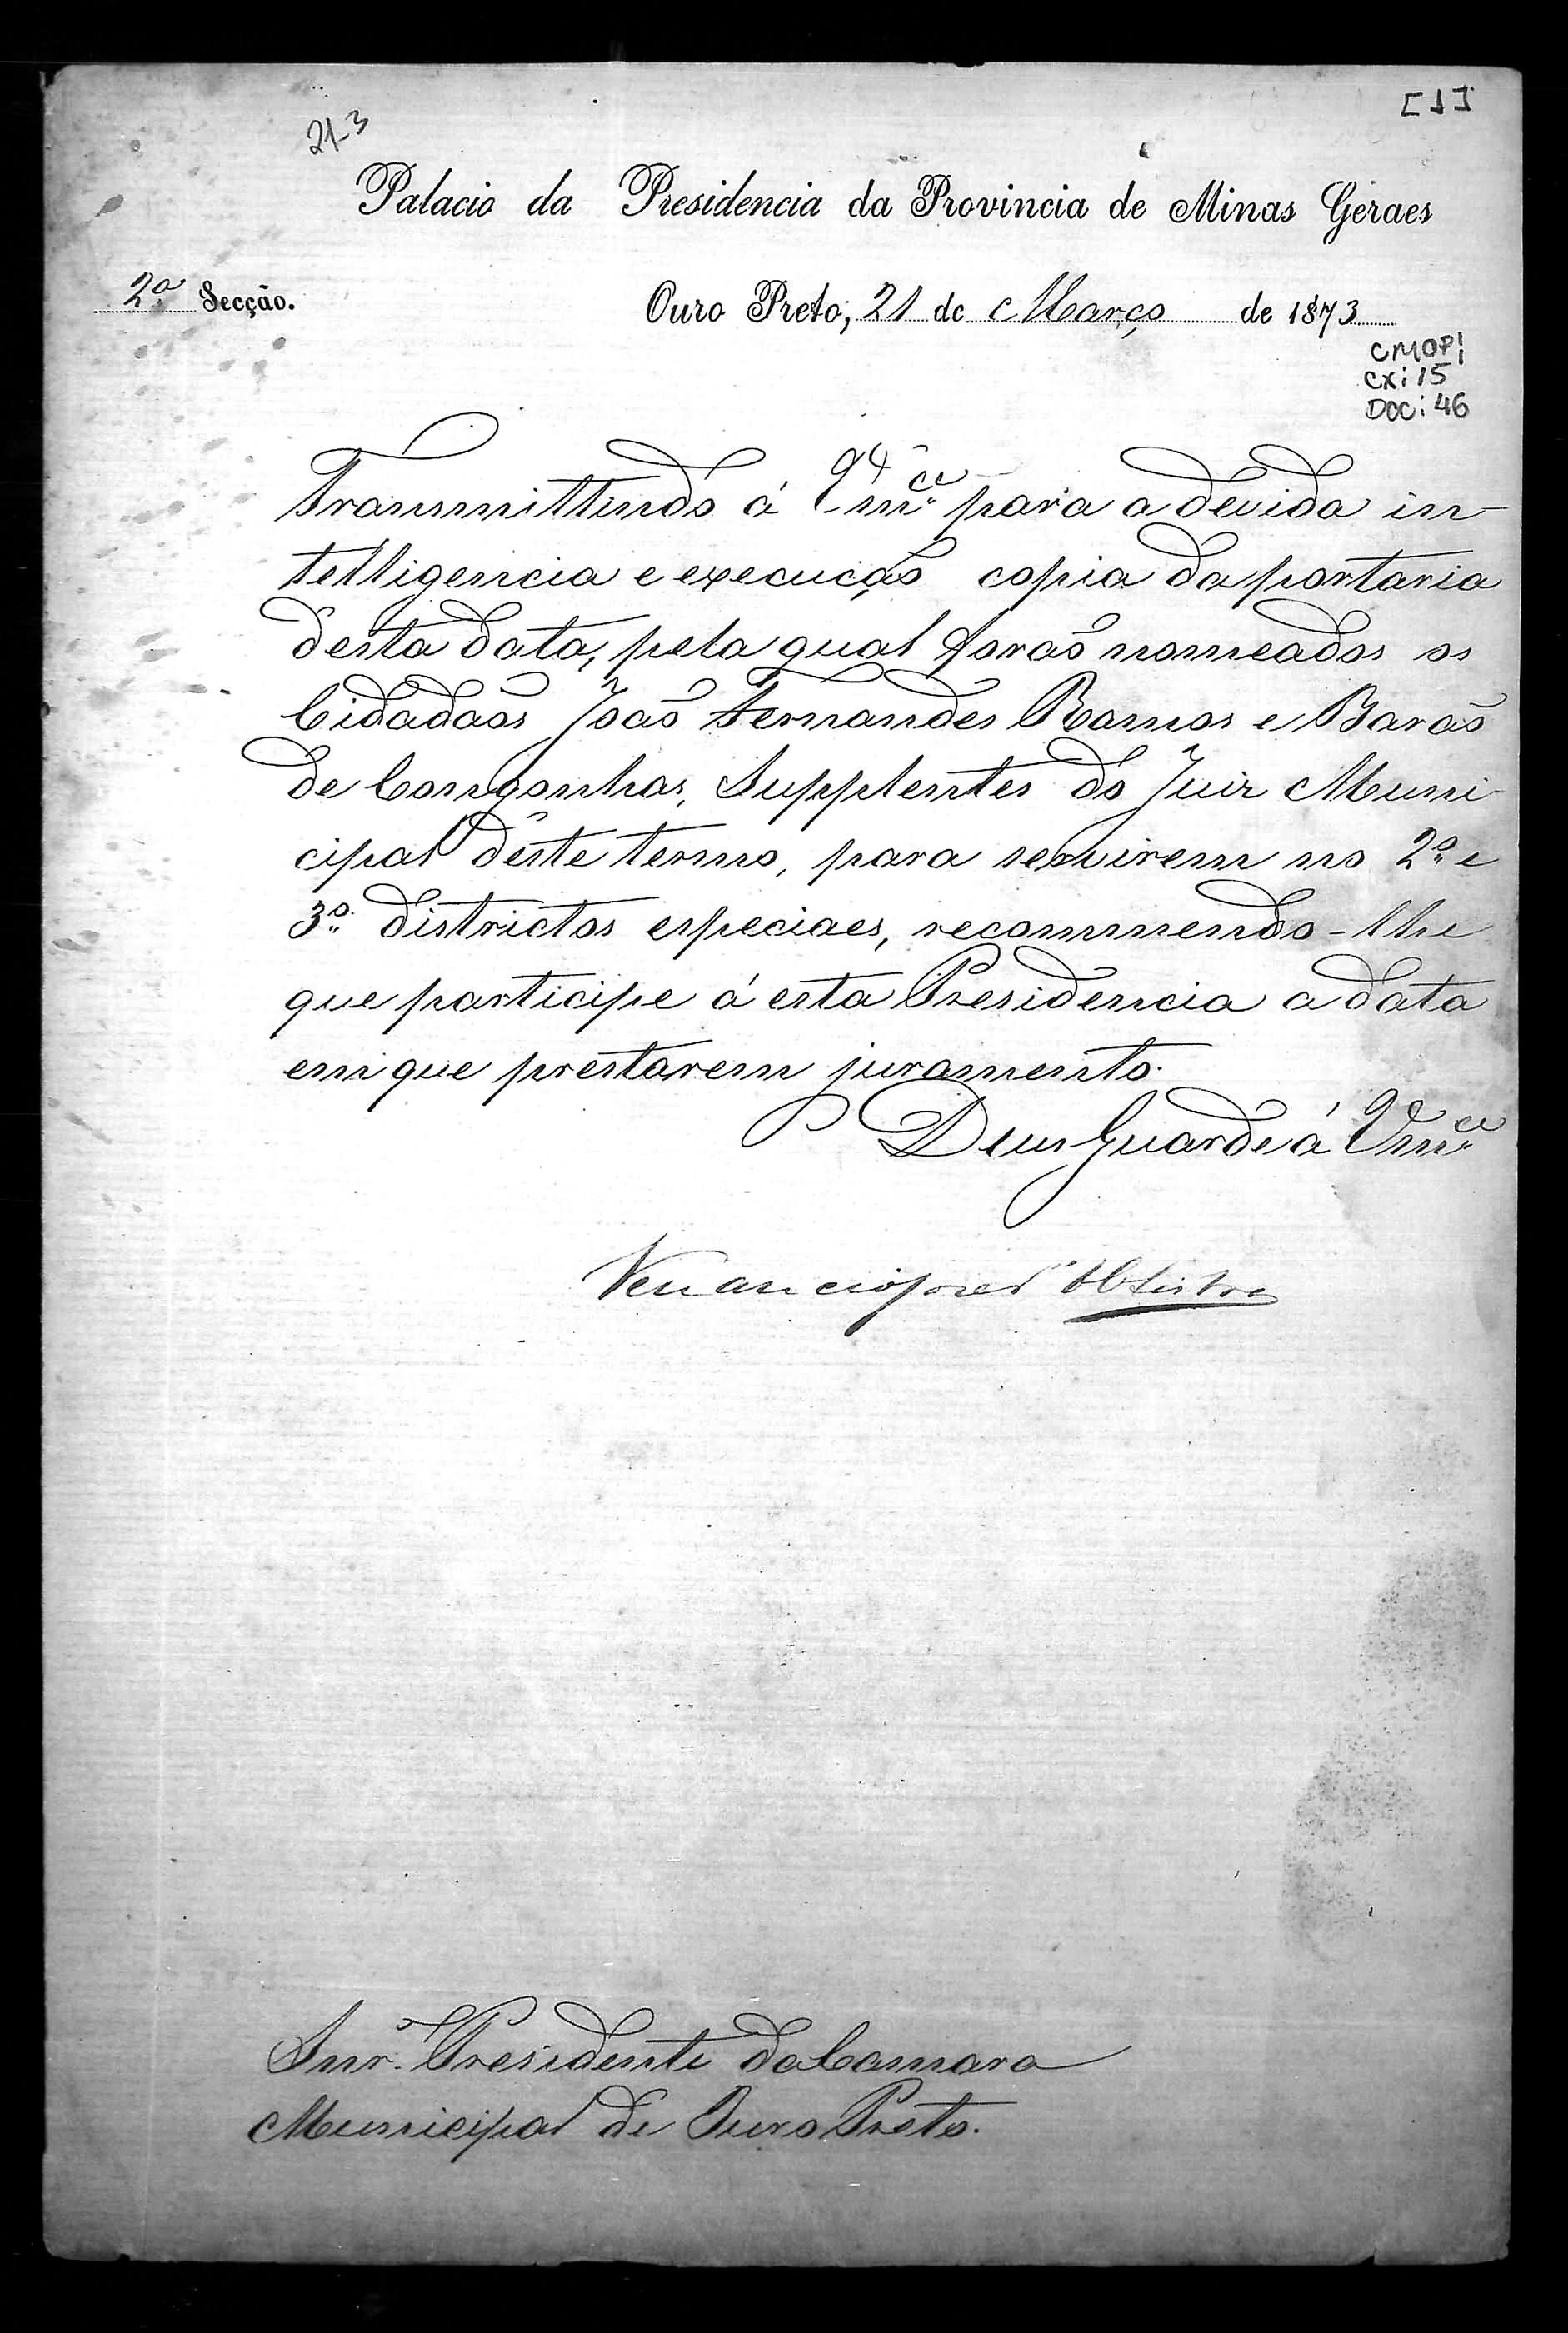 [1]
21-3
Palacio da Presidencia da Provincia de Minas Geraes
2ª Secção.
Ouro Preto, 21 de Março de 1873
CMOP!
CX: 15
DOC: 46
Transmittindo á Vm.ce para a devida in-
telligencia e execução copia da portaria
desta data, pela qual forão nomeados os
Cidadãos João Fernandes Ramos e Barão
de Congonhas, Supplentes do Juiz Muni-
cipal deste termo, para servirem no 2º e
3º districtos especiaes, recommendo-lhe
que participe á esta Presidencia a data
em que prestarem juramento.
Deus Guarde á Vm.ce
Venancio José
Snr. Presidente da Camara
Municipal de Ouro Preto.